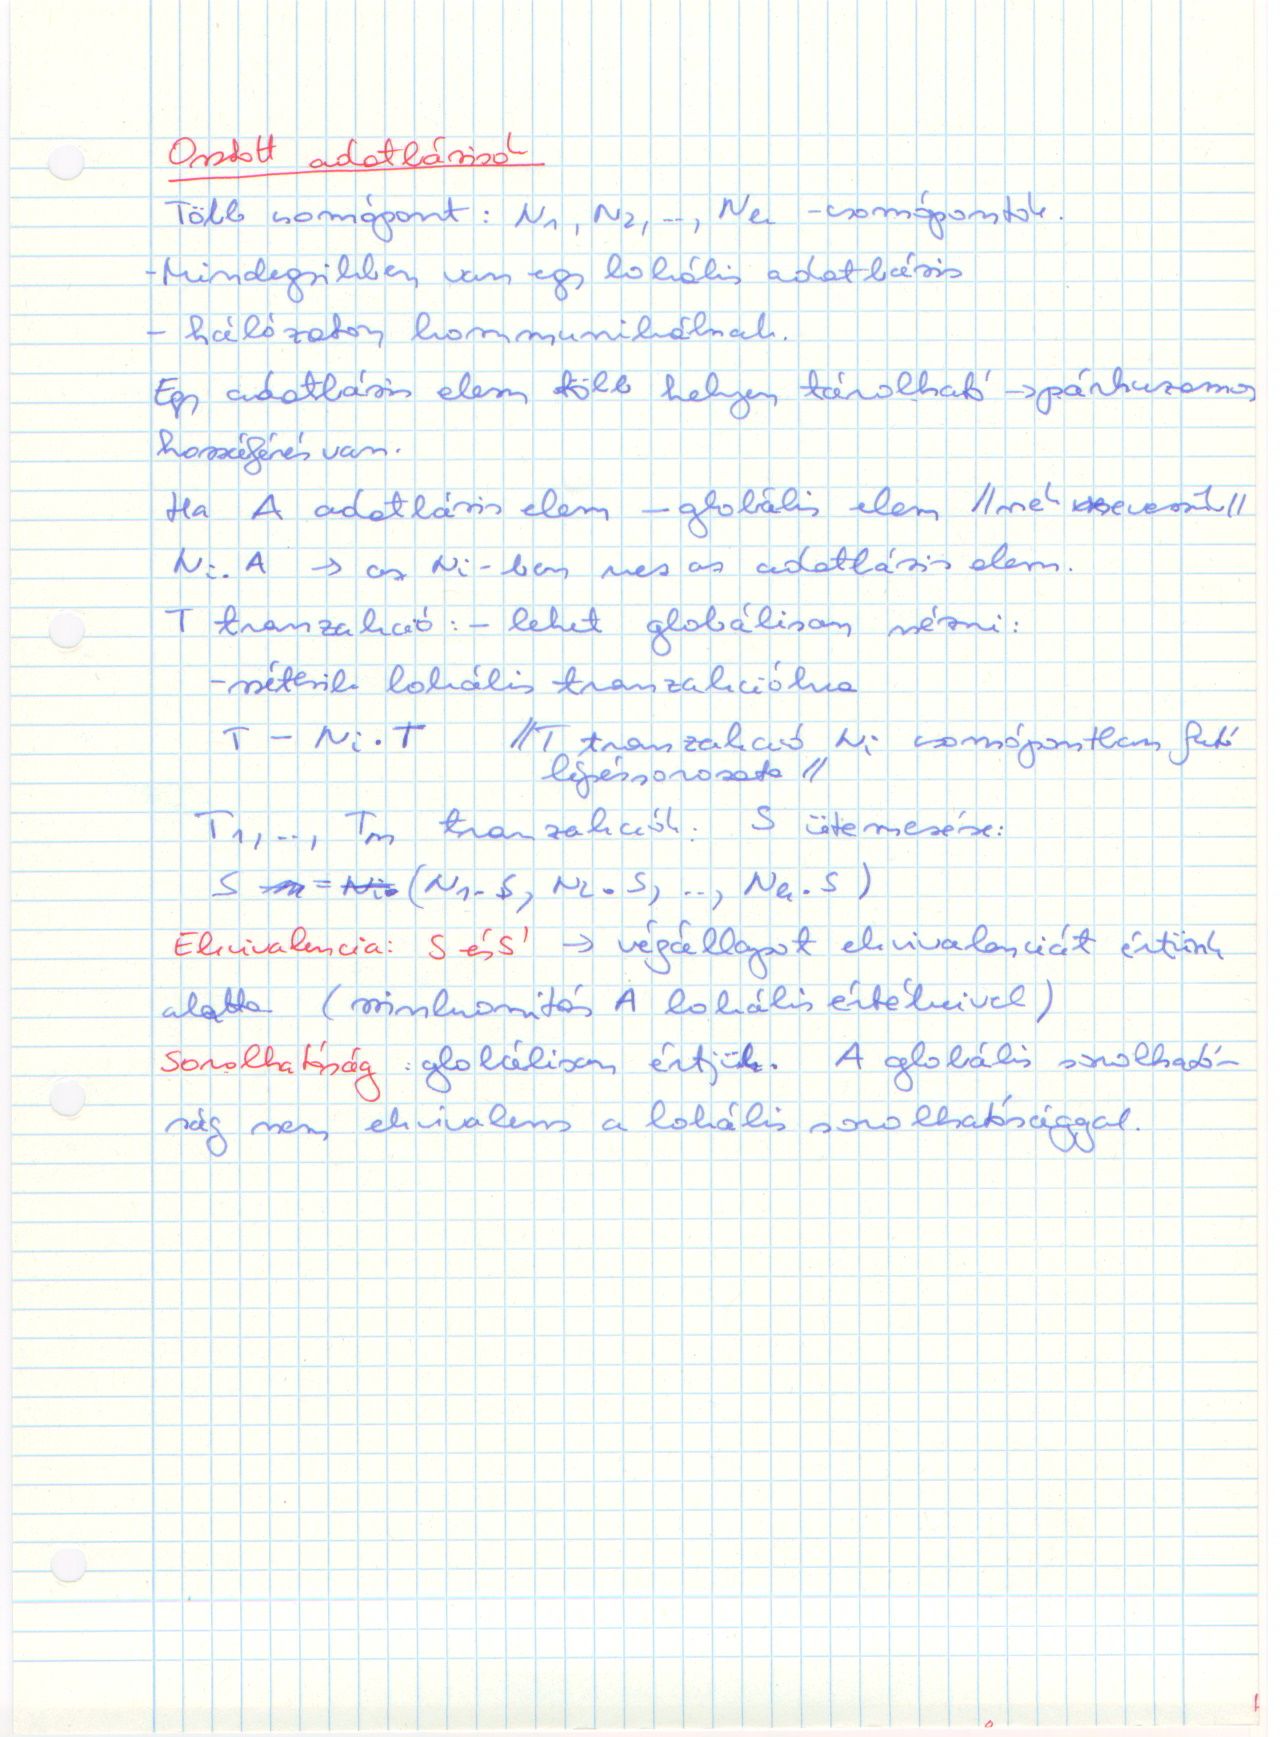 Osztott adatbázisok
Több csomópont: N1, N2, .., Nk - csomópontok.
- Mindegyikben van egy lokális adatbázis
- hálózaton kommunikálnak.
Egy adatbázis elem több helyen tárolható → párhuzamos
hozzáférés van.
Ha A adatbázis elem - globális elem //
Ni.A → az Ni-ben lévő az adatbázis elem.
T tranzakció: - lehet globálisan nézni:
- szétesik lokális tranzakciókra
T - Ni.T //T tranzakció Ni csomópontban futó
lépéssorozata //
T1, .., Tm tranzakciók. S ütemezése:
S = (N1.S, N2.S, .., Nk.S)
Ekvivalencia: S és S' → végállapot ekvivalenciát értünk
alatta (szinkronitás A lokális értékeivel)
Sorolhatóság: globálisan értjük. A globális sorolható-
ság nem ekvivalens a lokális sorolhatósággal.